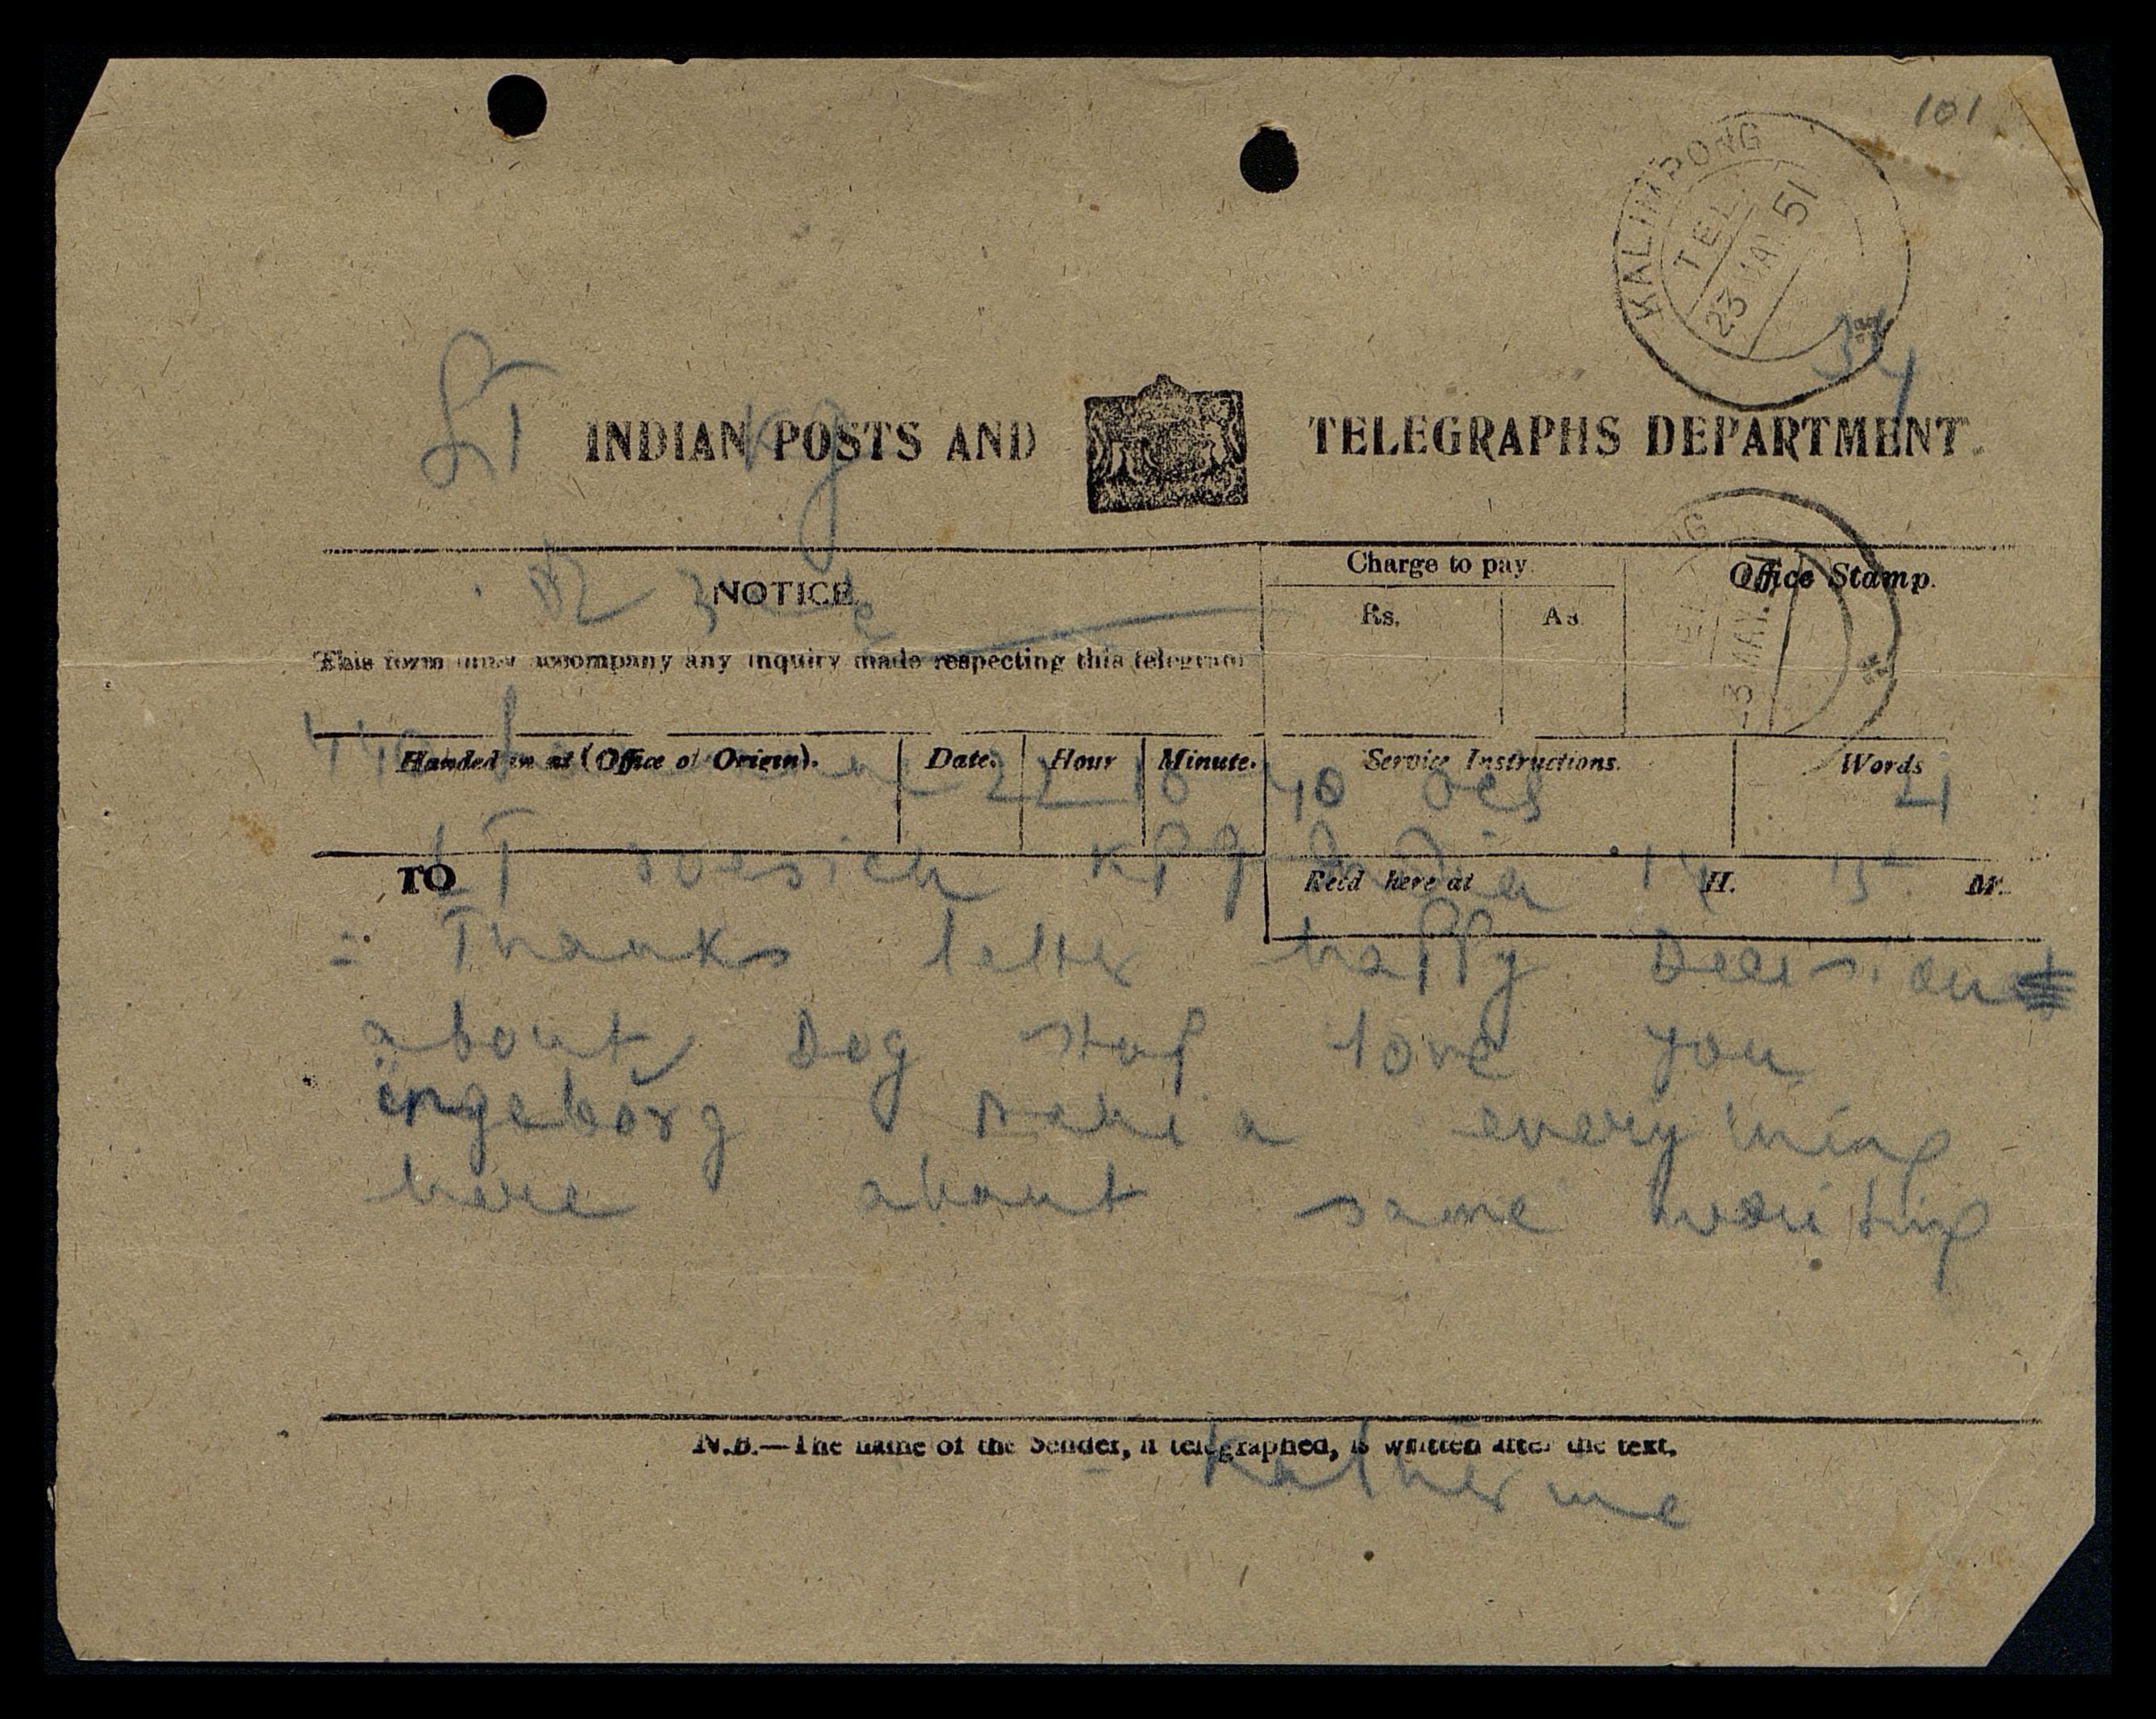 101
KALIMPONG
TEL
23 MAY 51
34
LT Kg
INDIAN POSTS AND TELEGRAPHS DEPARTMENT.
Charge to pay
Office Stamp.
NOTICE
Rs. As.
This form must accompany any inquiry made respecting this telegram
3 MAY.
Handed in at (Office of Origin). Date. Hour Minute. Service Instructions. Words
22 18 40 21
TO LT Recd here at H. M.
= Thanks letter happy Decision
about Dog stop love you
ingeborg maria everything
here about same writing
N.B.—The name of the Sender, if telegraphed, is written after the text.
= Katherine